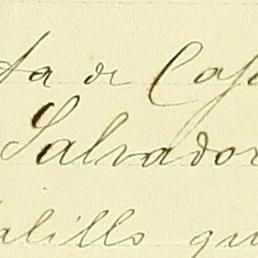 ta de Casa
Salvador
alillo qu